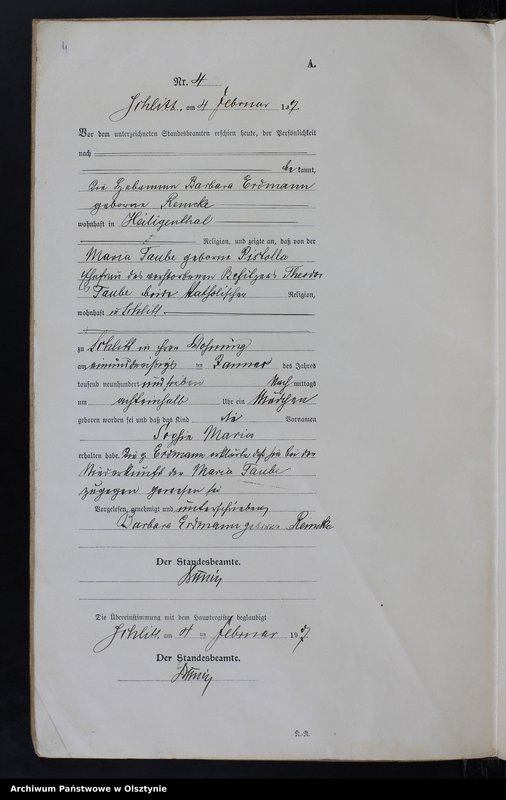 4
A.
Nr. 4
Schlitt, am 4 Februar 1907.
Vor dem unterzeichneten Standesbeamten erschien heute, der Persönlichkeit
nach
be kannt,
die Hebamme Barbara Erdmann
geborne Remcke
wohnhaft in Heiligenthal
Religion, und zeigte an, daß von der
Maria Taube geborne Pistolla
Ehefrau des verstorbenen Besitzers Theodor
Taube beide katholischer Religion,
wohnhaft in Schlitt
zu Schlitt in ihrer Wohnung
am einunddreißigst en Januar des Jahres
tausend neunhundert und sieben Nach mittags
um achteinhalb Uhr ein Mädchen
geboren worden sei und daß das Kind die Vornamen
Sophie Maria
erhalten habe. Die p. Erdmann erklärte daß sie bei der
Niederkunft der Maria Taube
zugegen gewesen sei
Vorgelesen, genehmigt und unterschrieben
Barbara Erdmann geborne Remcke
Der Standesbeamte.
Die Übereinstimmung mit dem Hauptregister beglaubigt
Schlitt, am 4 ten Februar 1907.
Der Standesbeamte.
Archiwum Państwowe w Olsztynie